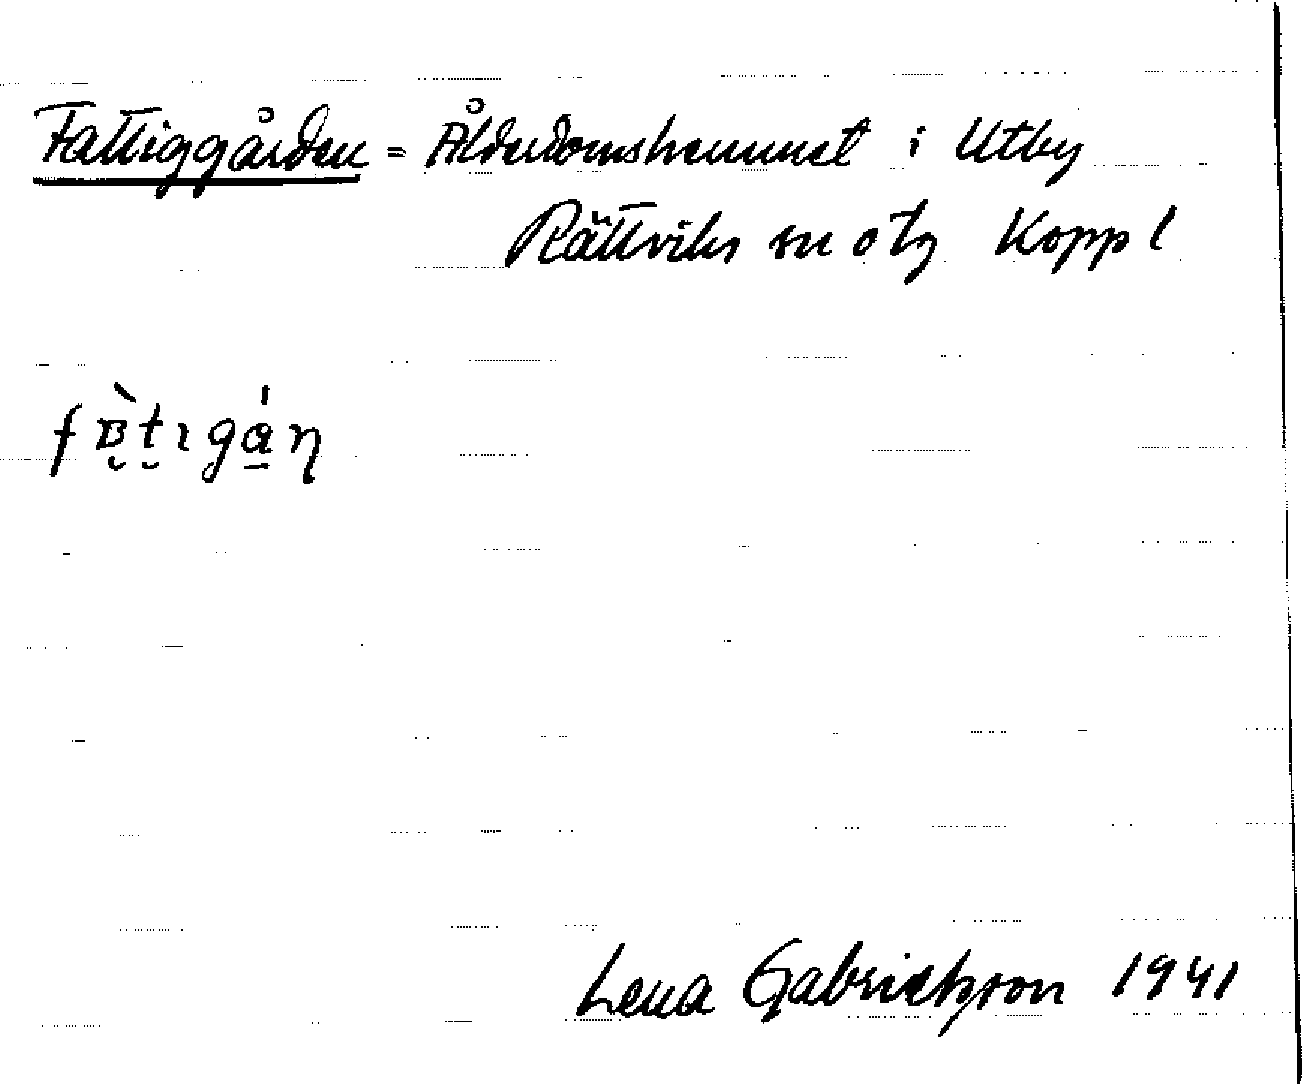 Fattiggården = Ålderdomshemmet i Utby
Rättviks sn o tg Kopp l
fɐ̀tıgá̱η
Lena Gabrielsson 1941